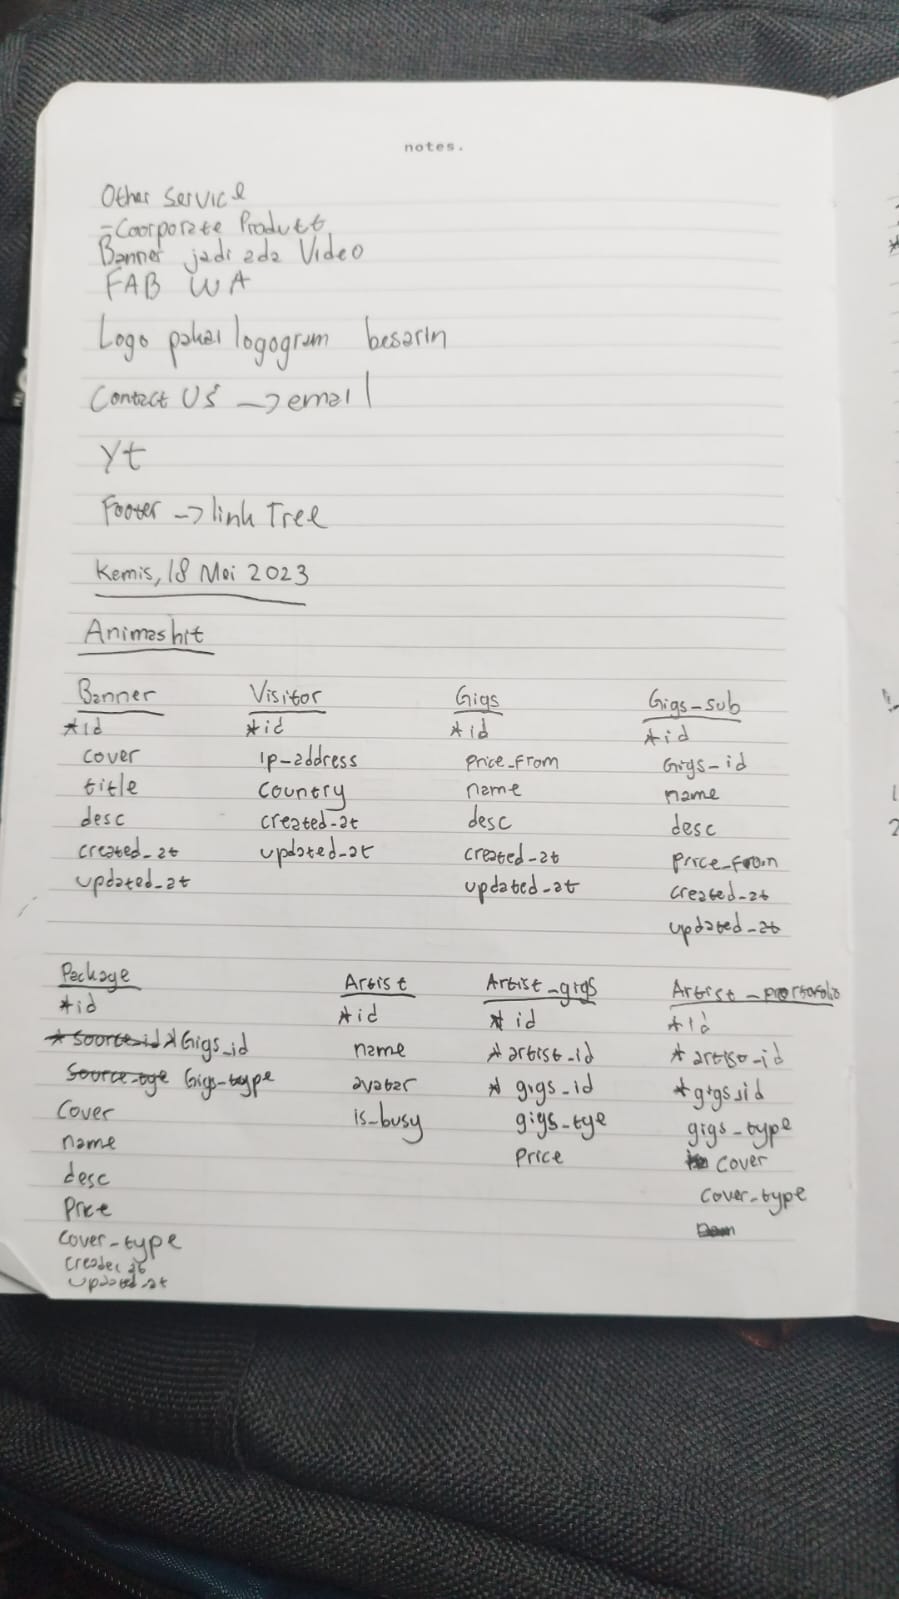 notes.
Other Service
- Coorporate Product
Banner jadi ada Video
FAB WA
Logo pakai logogram besarin
Contact Us -> email
Yt
Footer -> link Tree
Kemis, 18 Mei 2023
Animashit
Banner
*id
cover
title
desc
created_at
updated_at
Visitor
*id
ip_address
country
created_at
updated_at
Gigs
*id
Price_From
name
desc
created_at
updated_at
Gigs_sub
*id
Gigs_id
name
desc
Price_From
created_at
updated_at
Package
*id
* Source_id * Gigs_id
Source_tye Gigs_type
Cover
name
desc
Price
cover_type
created at
updated_at
Artist
*id
name
avatar
is_busy
Artist_gigs
* id
* artist_id
* gigs_id
gigs_tye
Price
Artist_portofolio
*id
* artist_id
* gigs_id
gigs_type
cover
cover_type